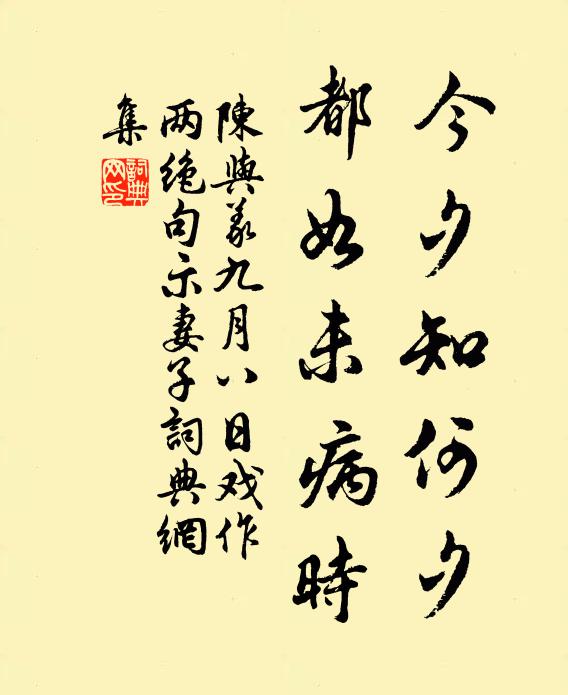 今夕知何夕
都如未病時
陳與義九月八日戏作
两绝句示妻子詞典網
集
詞典
网印